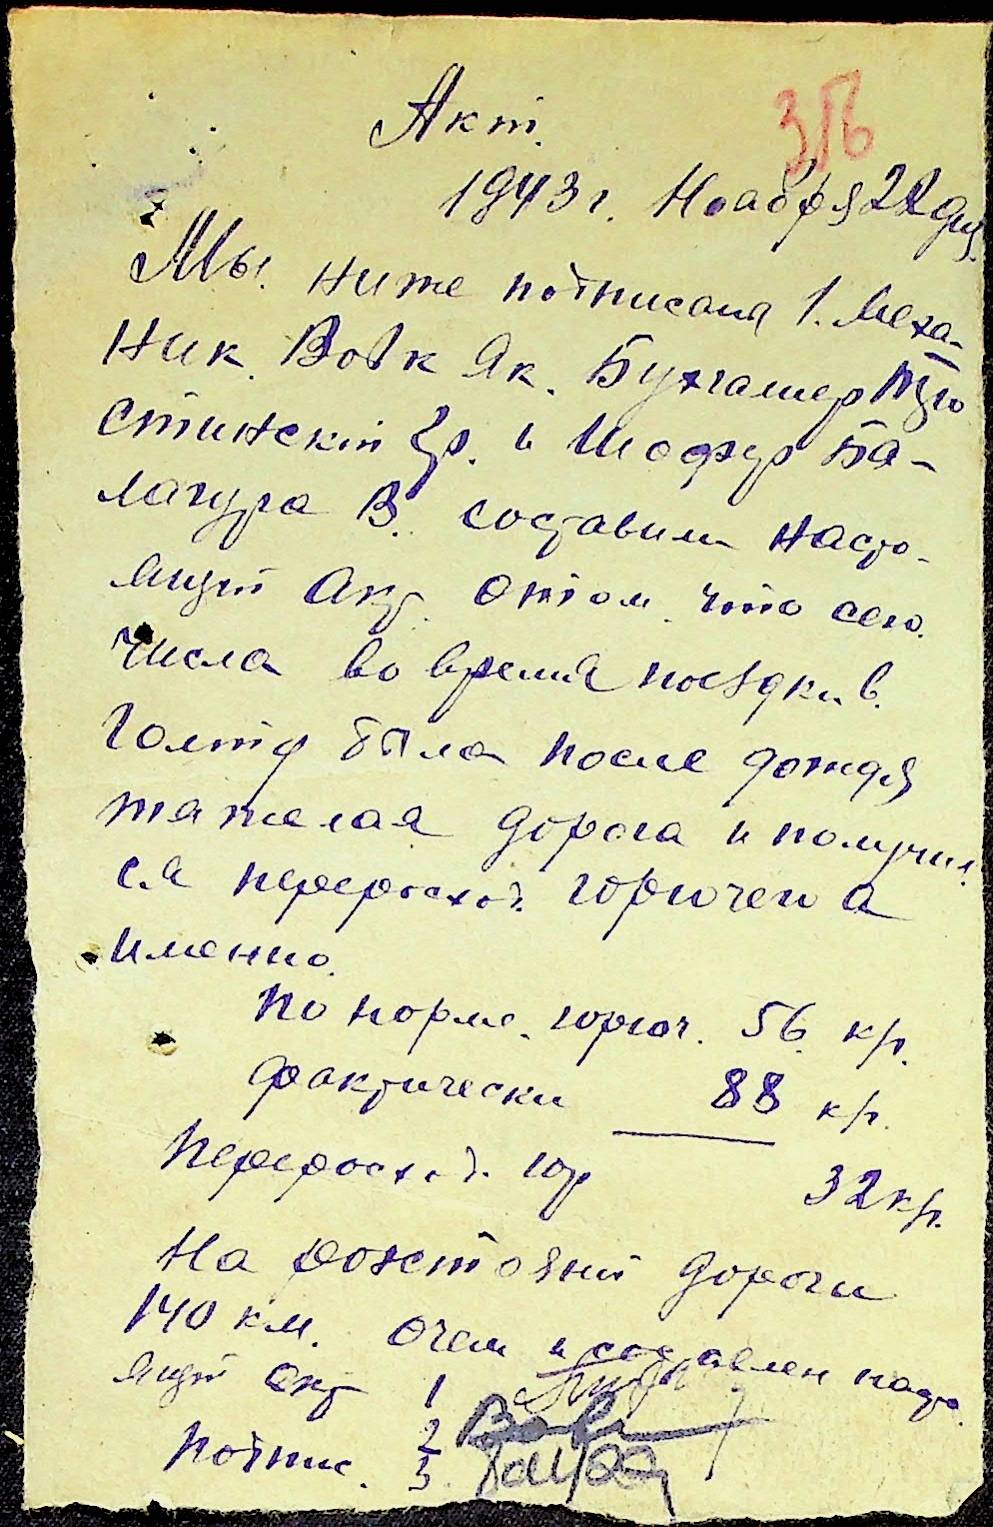 Акт.
316
1943 г. Ноабря 22 дня.
Мы. ниже потписаня 1. Меха-
ник. Вовк Як. Бухгалтер
стинскій Гр. и Шофер Ба-
лагура В. составили насто-
ящій Акт. Отом что сего.
Числа во время поездки в.
Голту была после дождя
тяжелая дорога и получил.
ся перерасход. горючего а
именно.
По норме. горюч. 56 кг.
фактически 88 кг.
Перерасход. гор 32 кг.
На росстояній дороги
140 км. Очем и составлен насто.
ящій акт 1
Потпис. 2
3.